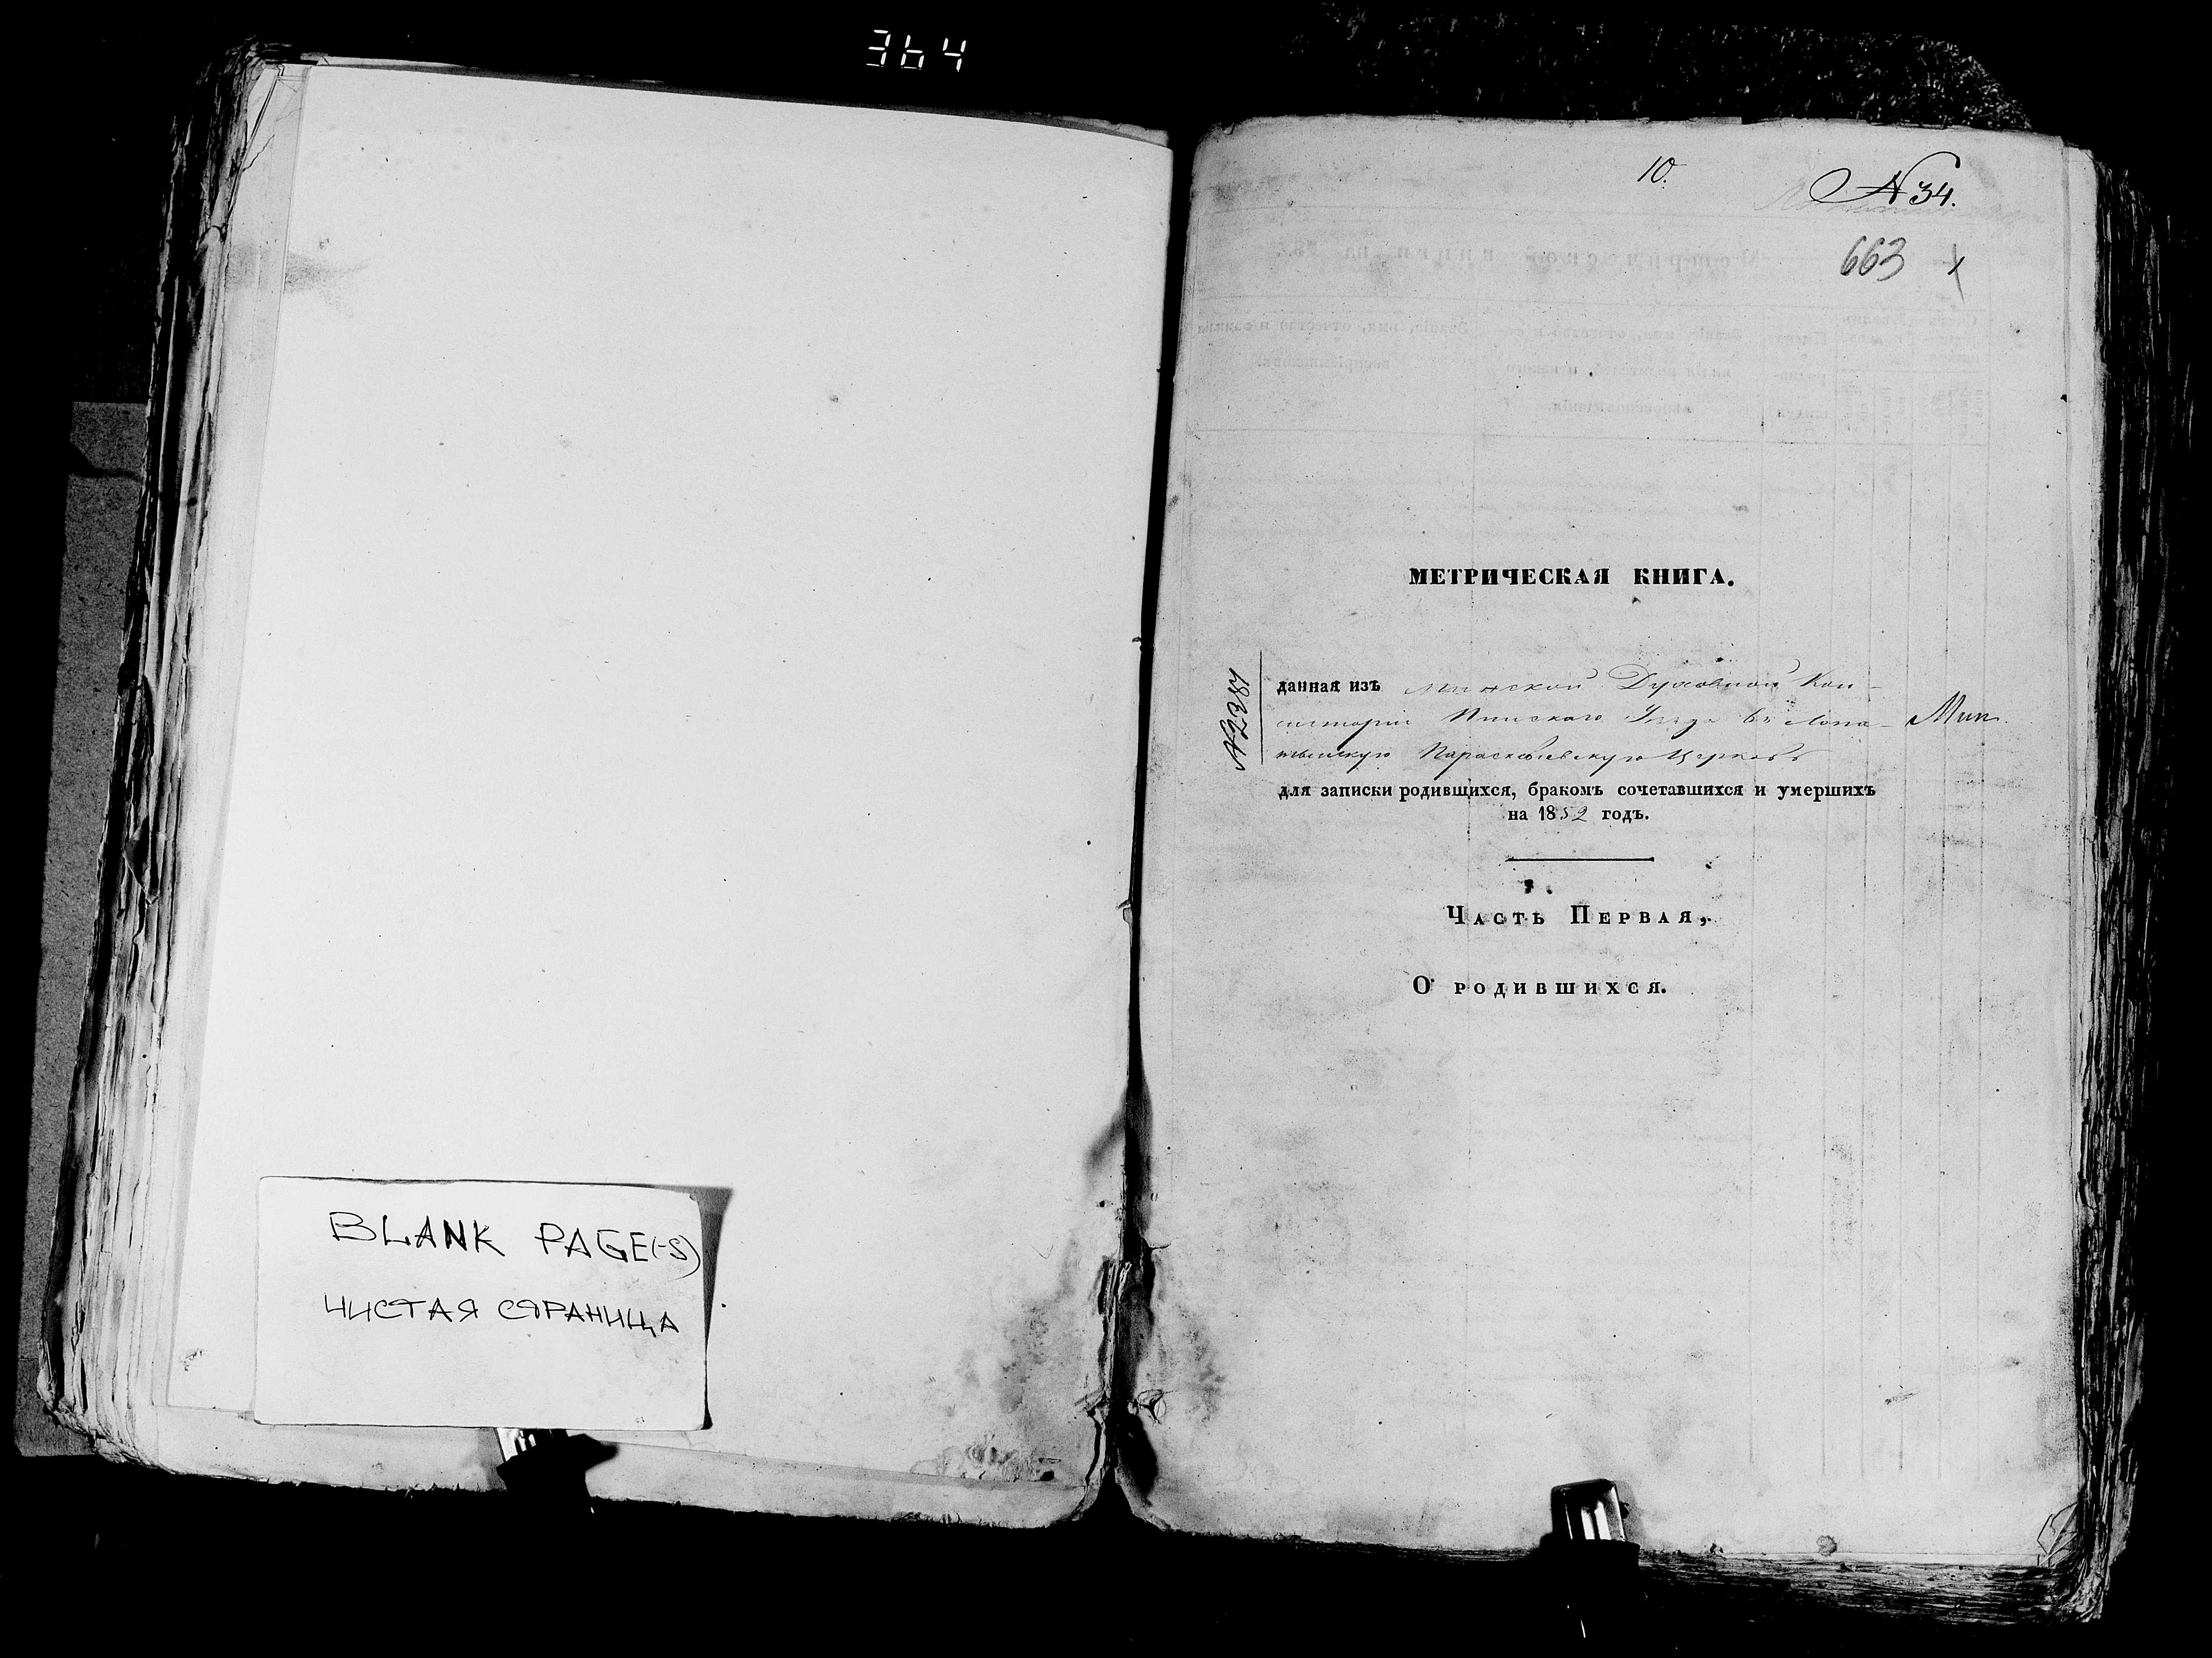 364
BLANK PAGE(-S)
ЧИСТАЯ СТРАНИЦА
10.
N 34.
663
МЕТРИЧЕСКАЯ КНИГА.
N 2381
данная изъ Минской Духовной Кон-
систоріи Пинскаго Уезда въ Лопа-
тынскую Параскевіевскую Церковь
Мин
для записки родившихся, бракомъ сочетавшихся и умершихъ
на 1852 годъ.
Часть Первая,
О родившихся.